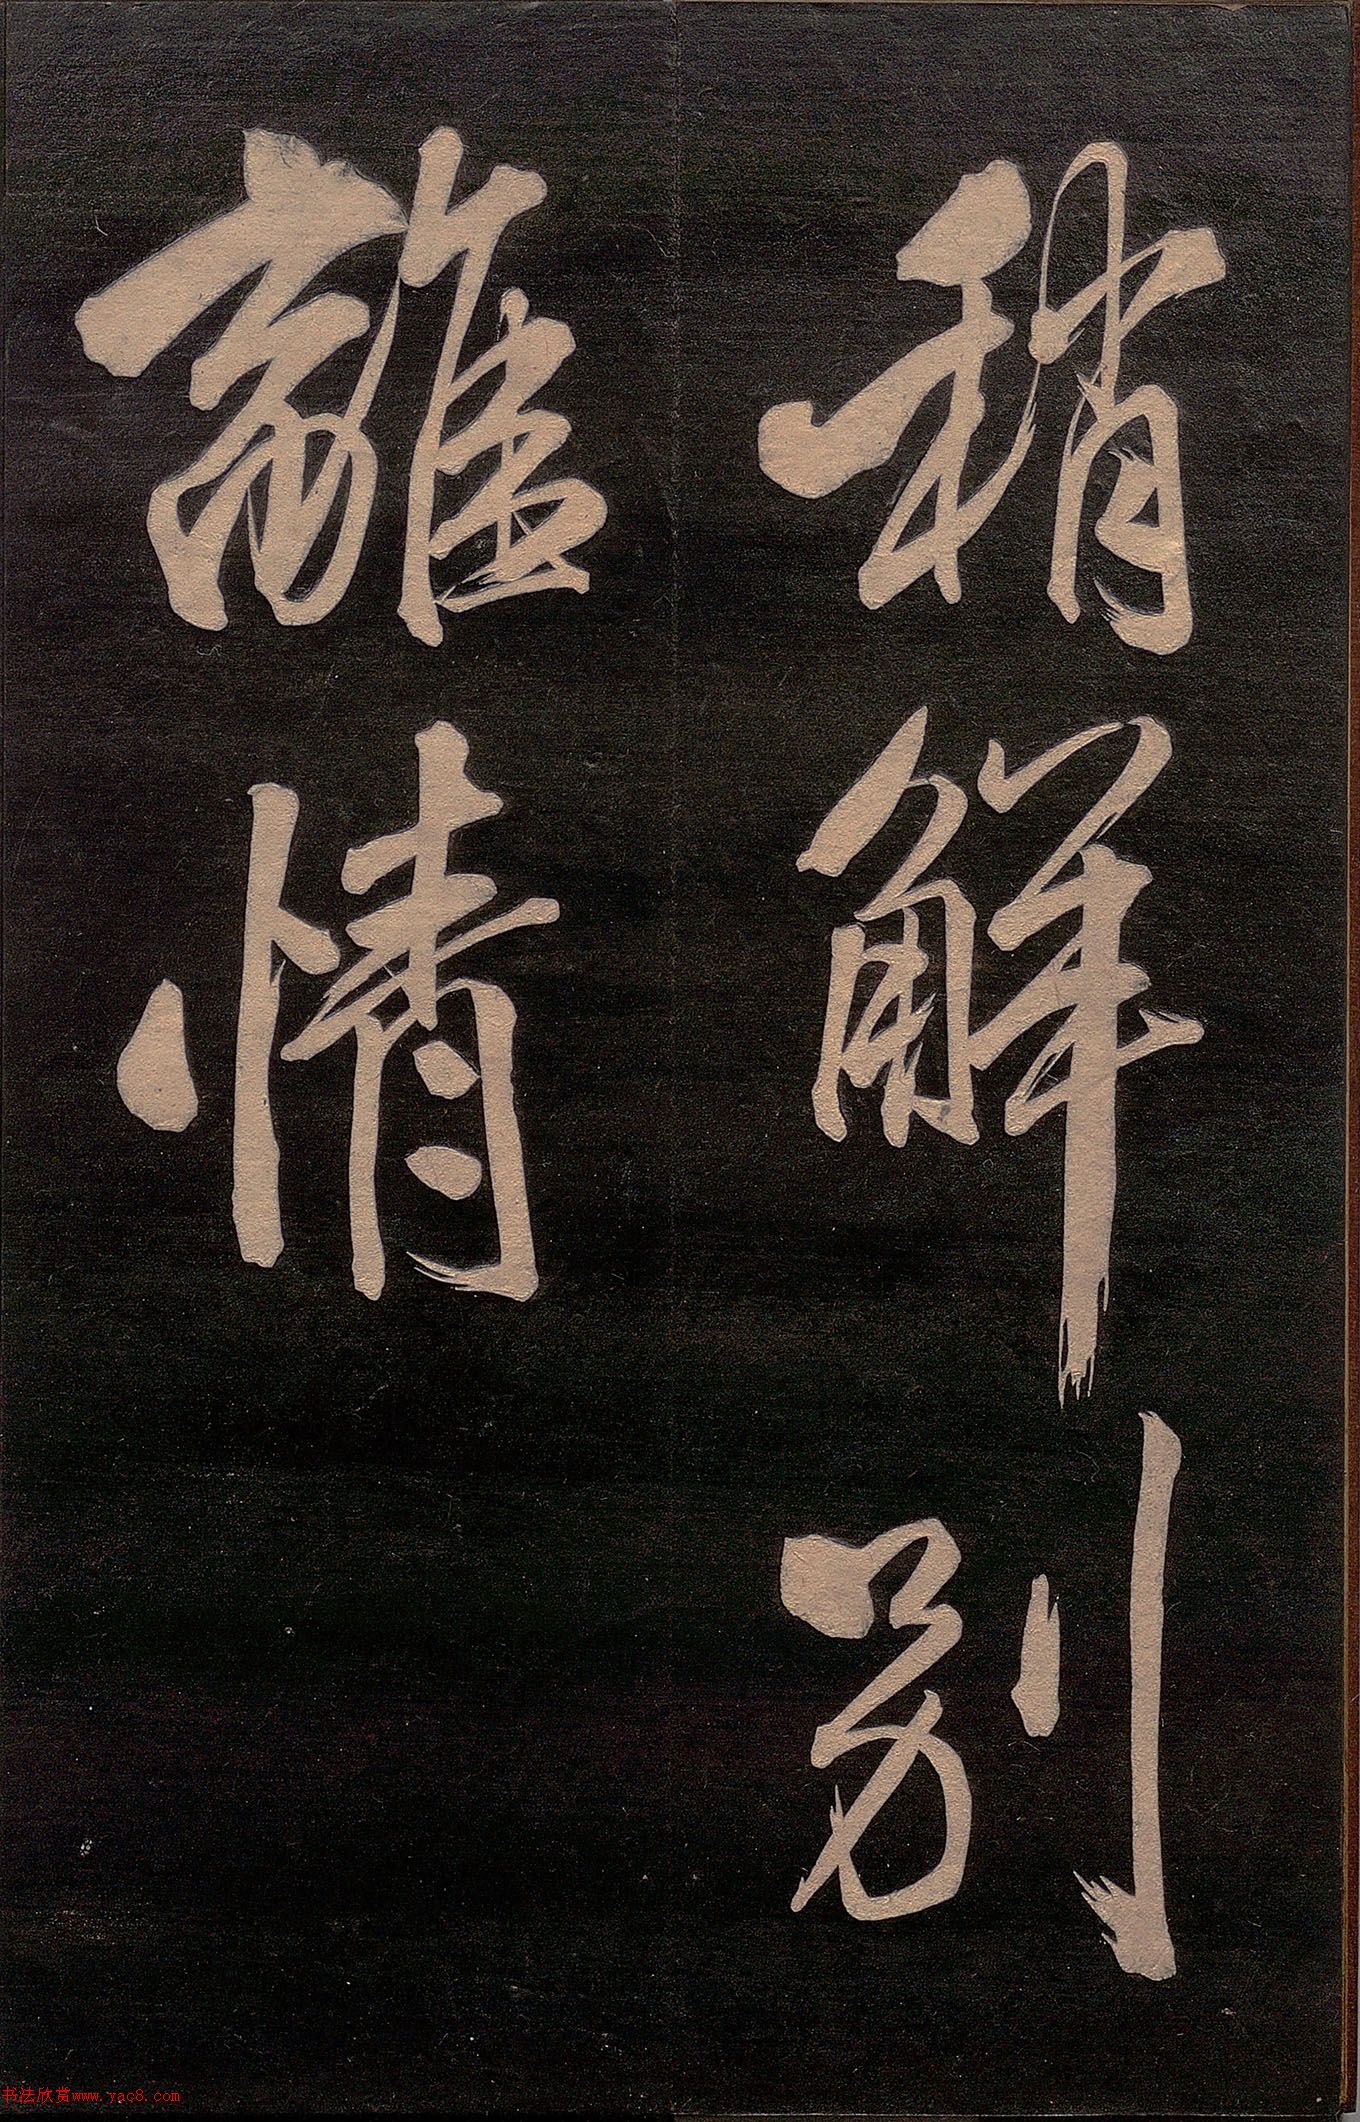 稍解别
離情
书法欣赏www.yac8.com